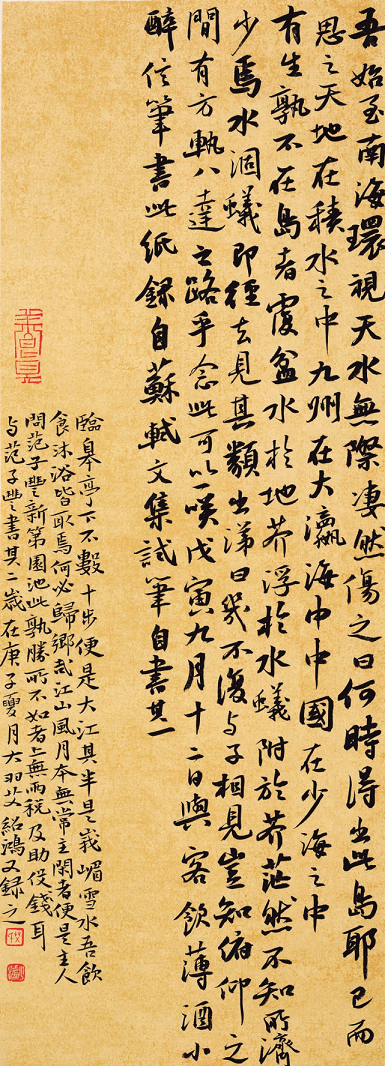 吾始至南海環視天水無際凄然傷之曰何時得出此島耶已而
思之天地在積水之中九州在大瀛海中中國在少海之中
有生孰不在島者覆盆水於地芥浮於水蟻附於芥茫然不知所濟
少焉水涸蟻即徑去見其類出涕曰幾不復与子相見豈知俯仰之
間有方軌八達之路乎念此可以一咲戊寅九月十二日與客飲薄酒小
醉信筆書此紙錄自蘇軾文集試筆自書其一
臨皋亭下不數十步便是大江其半是峩嵋雪水吾飲
食沐浴皆取焉何必歸鄉哉江山風月本無常主閑者便是主人
問范子豐新第園池此孰勝所不如者上無兩稅及助役錢耳
与范子豐書其二歲在庚子夏月大羽艾紹鴻又錄之